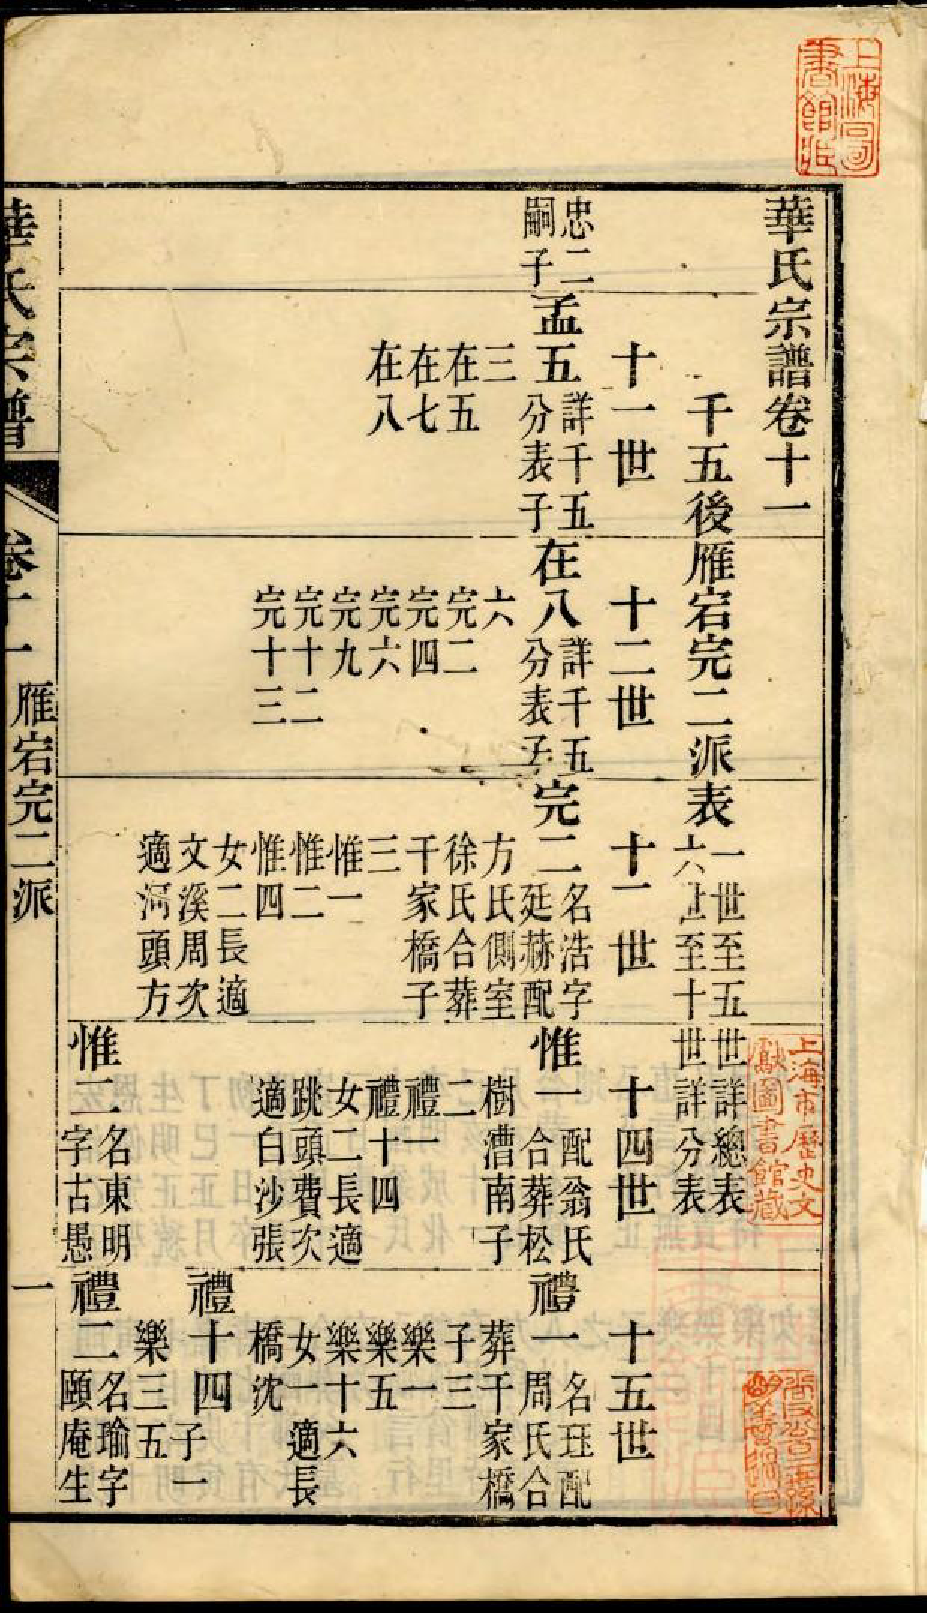 上海圖
書館藏
華氏宗譜卷十一
千五後雁宕完二派表
一世至五世詳總表
六世至十世詳分表
上海市歷史文
獻圖書館藏
十一世
十二世
十一世
十四世
十五世
忠二
嗣子
孟五
詳千五
分表子
三
在五
在七
在八
在八
詳千五
分表子
六
完二
完四
完六
完九
完十二
完十三
完二
名浩字
延赫配
方氏側室
徐氏合葬
干家橋子
三
惟一
惟二
惟四
女二長適
文溪周次
適頭方
惟一
配翁氏
合葬松
樹漕南子
二
禮一
禮十四
女二長適
跳頭費次
適白沙張
惟二
名東明
字古愚
禮一
名玨配
周氏合
葬干家橋
子三
樂一
樂五
樂十六
女一適長
橋沈
禮十四
子一
樂三五
禮二
名瑜字
頤庵生
華氏宗譜
卷十一
雁宕完二派
一